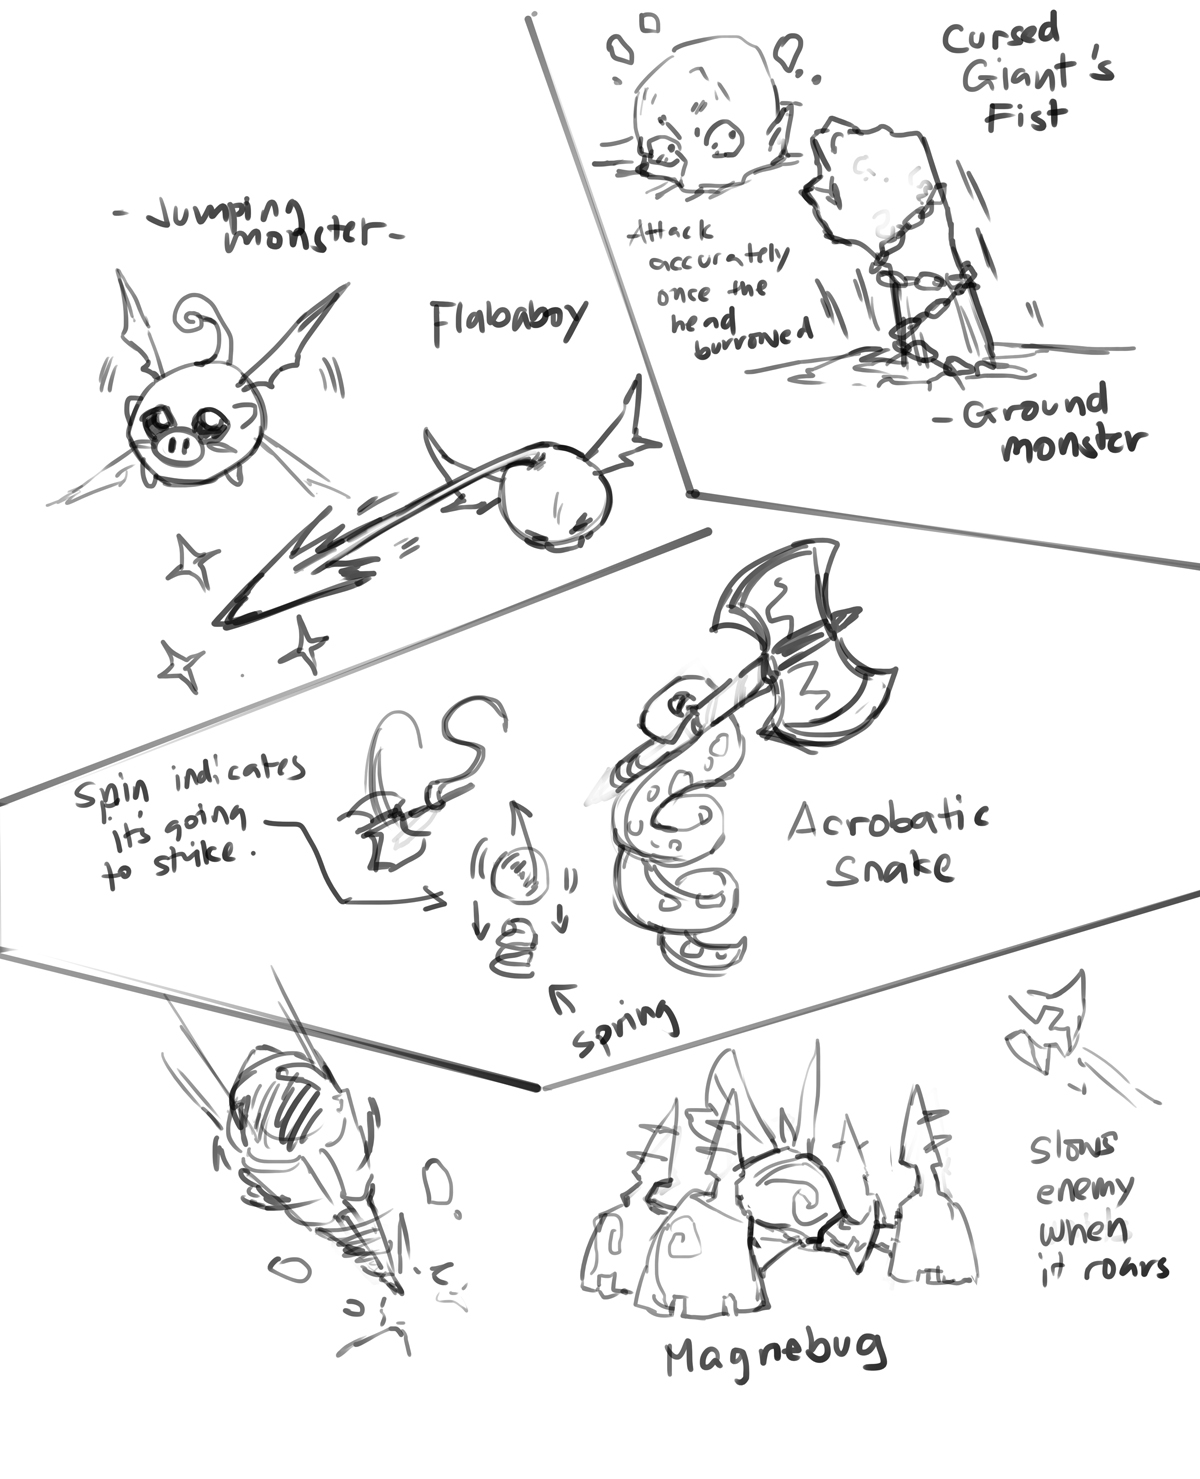 - Jumping
monster -
Flababoy
Cursed
Giant's
Fist
Attack
accurately
once the
head
burrowed
- Ground
monster
Spin indicates
it's going
to strike.
spring
Acrobatic
Snake
Slows
enemy
when
it roars
Magnebug